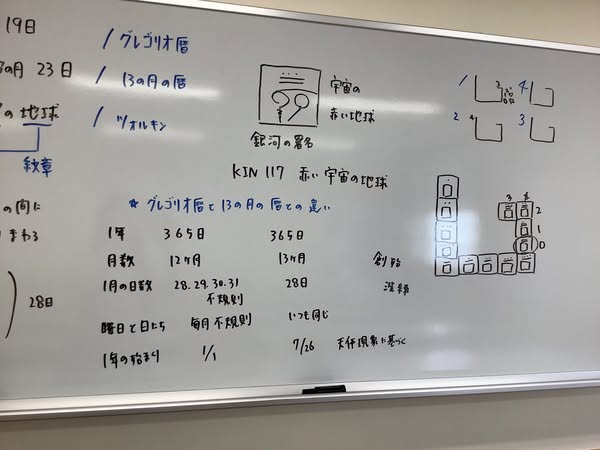 19日
の月 23日
の地球
紋章
の向に
まわる
28日
/ グレゴリオ暦
/ 13の月の暦
/ ツォルキン
宇宙の
赤い地球
銀河の署名
KIN 117 赤い宇宙の地球
☆ グレゴリオ暦と13の月の暦との違い
1年 365日 365日
月数 12ヶ月 13ヶ月
1月の日数 28.29.30.31 28日
不規則
曜日と日にち 毎月不規則 いつも同じ
1年の始まり 1/1 7/26 天体現象に基づく
創始
1 2 4
2 4 3
3 4
2
1
0